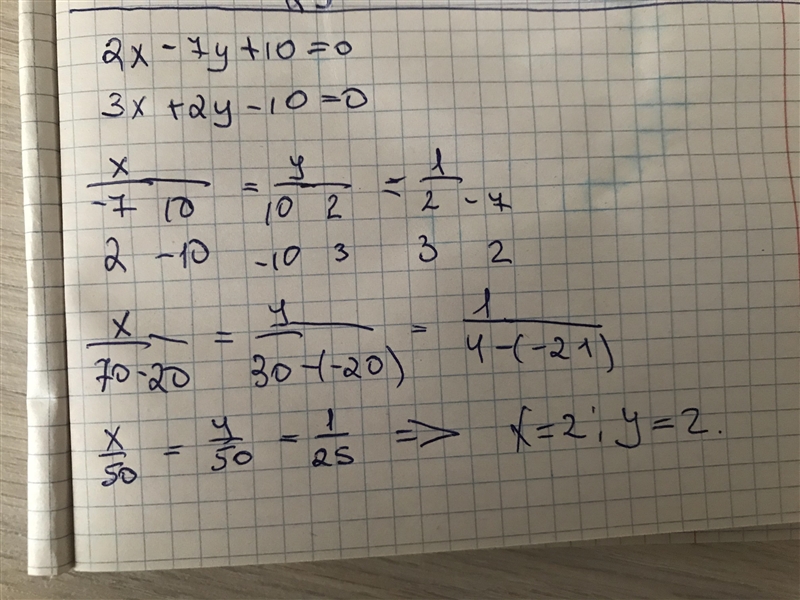 2x - 7y + 10 = 0
3x + 2y - 10 = 0
x/(-7 10) = y/(10 2) = 1/(2 -7)
2 -10 -10 3 3 2
x/(70-20) = y/(30-(-20)) = 1/(4-(-21))
x/50 = y/50 = 1/25 => x=2; y=2.